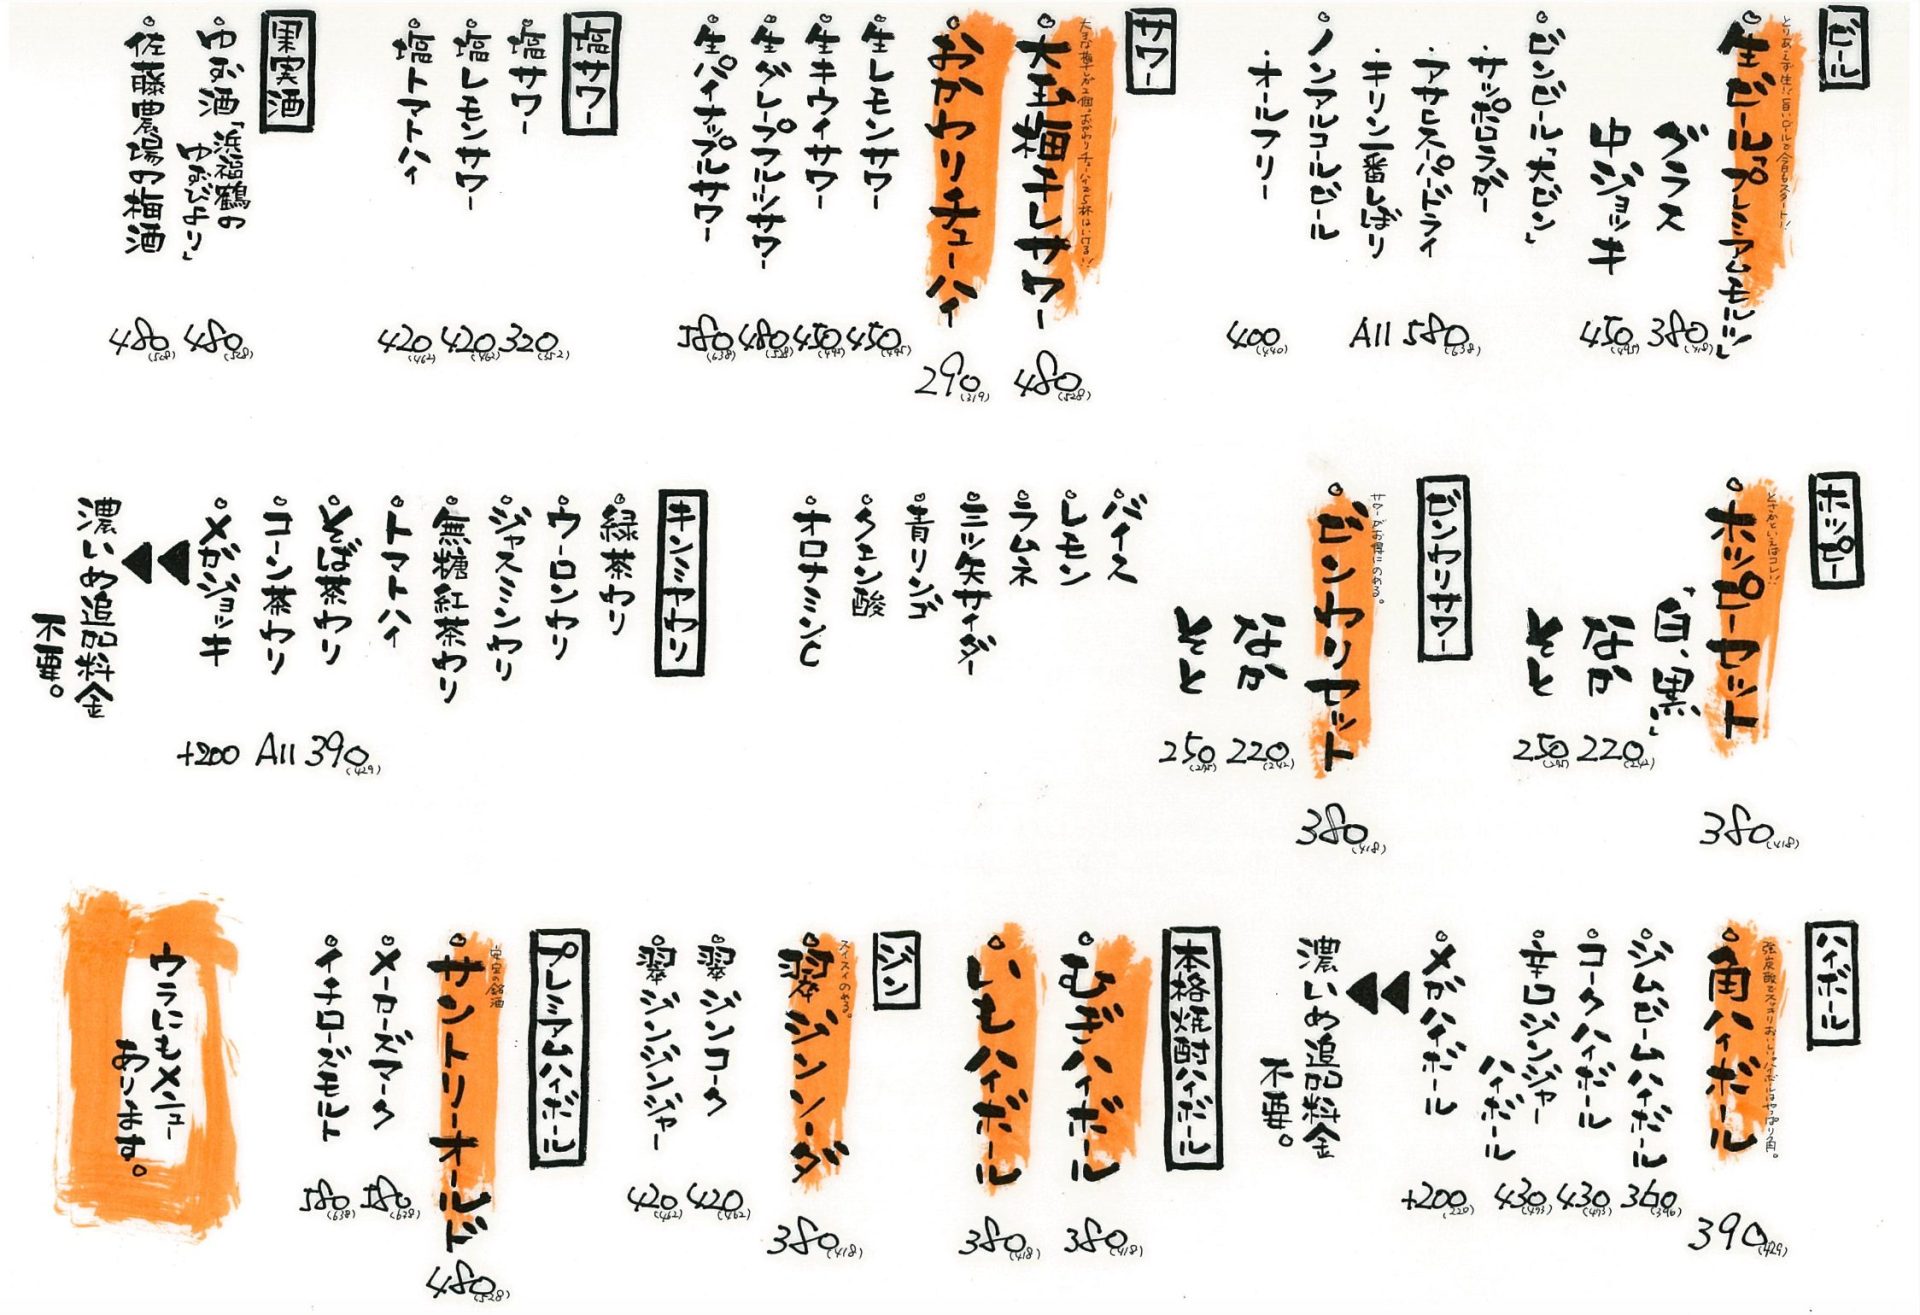 ビール
とりあえず生!!旨いビールで今日もスタート!!
生ビール「プレミアムモルツ」
グラス 380(418)
中ジョッキ 450(495)
ビンビール「大ビン」
・サッポロラガー
・アサヒスーパードライ
・キリン一番しぼり
All 580(638)
ノンアルコールビール
・オールフリー 400(440)
サワー
大福チレサワー 480(528)
おかわりチューハイ 290(319)
生レモンサワー 450(495)
生キウイサワー 450(495)
生グレープフルーツサワー 480(528)
生パイナップルサワー 580(638)
塩サワー
塩サワー 320(352)
塩レモンサワー 420(462)
塩トマトハイ 420(462)
果実酒
ゆず酒「浜福鶴の
ゆずびより」 480(528)
佐藤農場の梅酒 480(508)
ホッピー
とさかといえばコレ!!
ホッピーセット 380(418)
「白・黒」
なか 220(242)
そと 250(275)
ビンワリサワー
サワーがお得にのめる。
ビンワリセット 380(418)
なか 220(242)
そと 250(275)
バイス
レモン
ラムネ
三ツ矢サイダー
青リンゴ
クエン酸
オロナミンC
キンミヤワリ
緑茶ワリ
ウーロンワリ
ジャスミンワリ
無糖紅茶ワリ
トマトハイ
そば茶ワリ
コーン茶ワリ
All 390(429)
メガジョッキ +200
濃いめ追加料金
不要。
ハイボール
強炭酸でスッキリおいしい。ハイボールはやっぱり角。
角ハイボール 390(429)
ジムビームハイボール 360(396)
コークハイボール 430(473)
辛口ジンジャー
ハイボール 430(473)
メガハイボール +200(220)
濃いめ追加料金
不要。
本格焼酎ハイボール
むぎハイボール 380(418)
いもハイボール 380(418)
ジン
スイスイのめる。
翠ジンソーダ 380(418)
翠ジンコーク 420(462)
翠ジンジンジャー 420(462)
プレミアムハイボール
定宝の銘酒
サントリーオールド 480(528)
メーカーズマーク 580(638)
イチローズモルト 580(638)
ウラにもメニュー
あります。